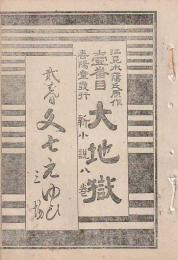 江見水蔭氏原作
壹番目 大地獄
春陽堂發行 新小説八巻
貳番目 文七元ゆひ
三場